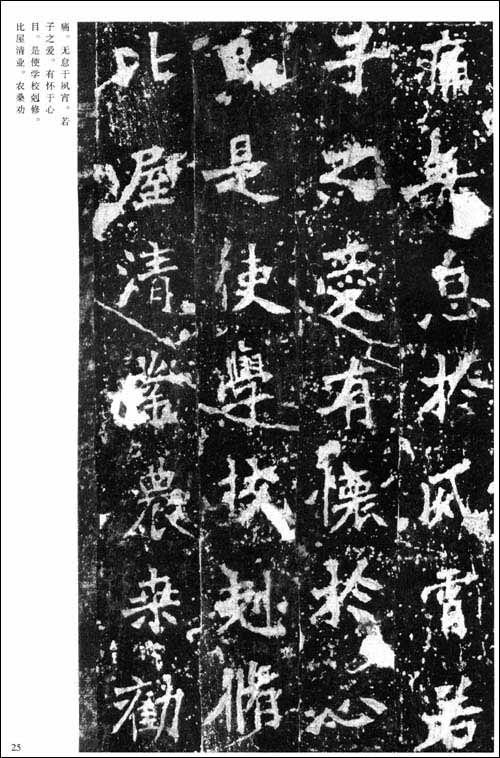 痛無怠於夙宵若
子之愛有懷於心
目是使學校剋脩
比屋清業農桑勸
痛。无怠于夙宵。若
子之爱。有怀于心
目。是使学校剋修。
比屋清业。农桑劝
25